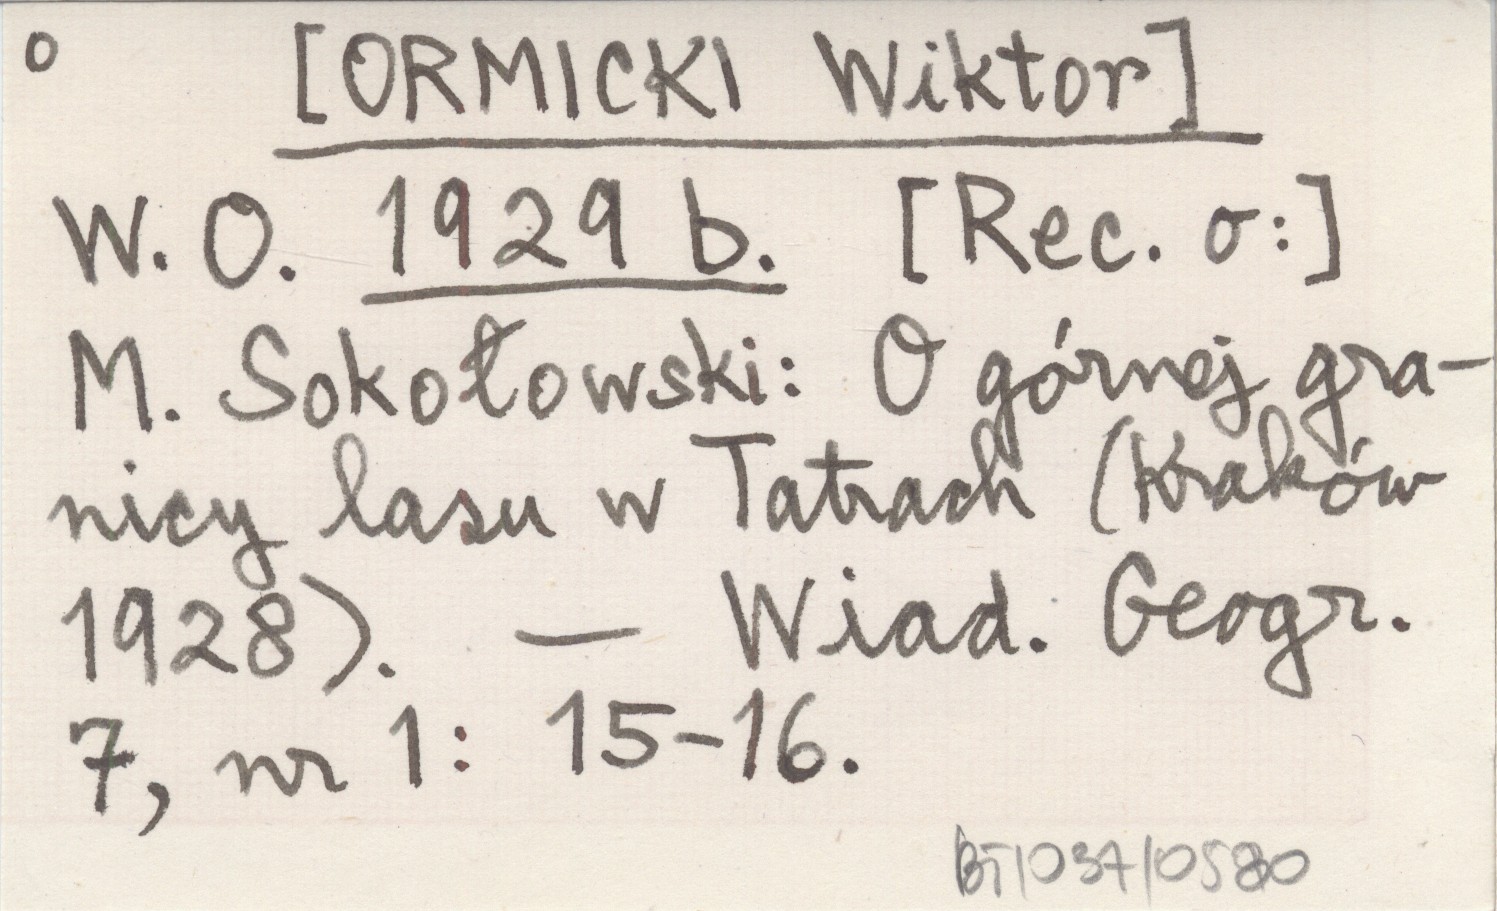 o [ORMICKI Wiktor]
W. O. 1929 b. [Rec. o:]
M. Sokołowski: O górnej gra-
nicy lasu w Tatrach (Kraków
1928). — Wiad. Geogr.
7, nr 1: 15-16.
BT/037/0580